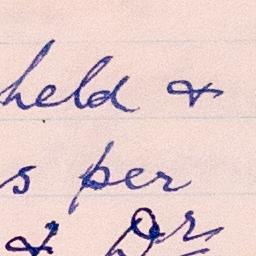 held &
s per
&